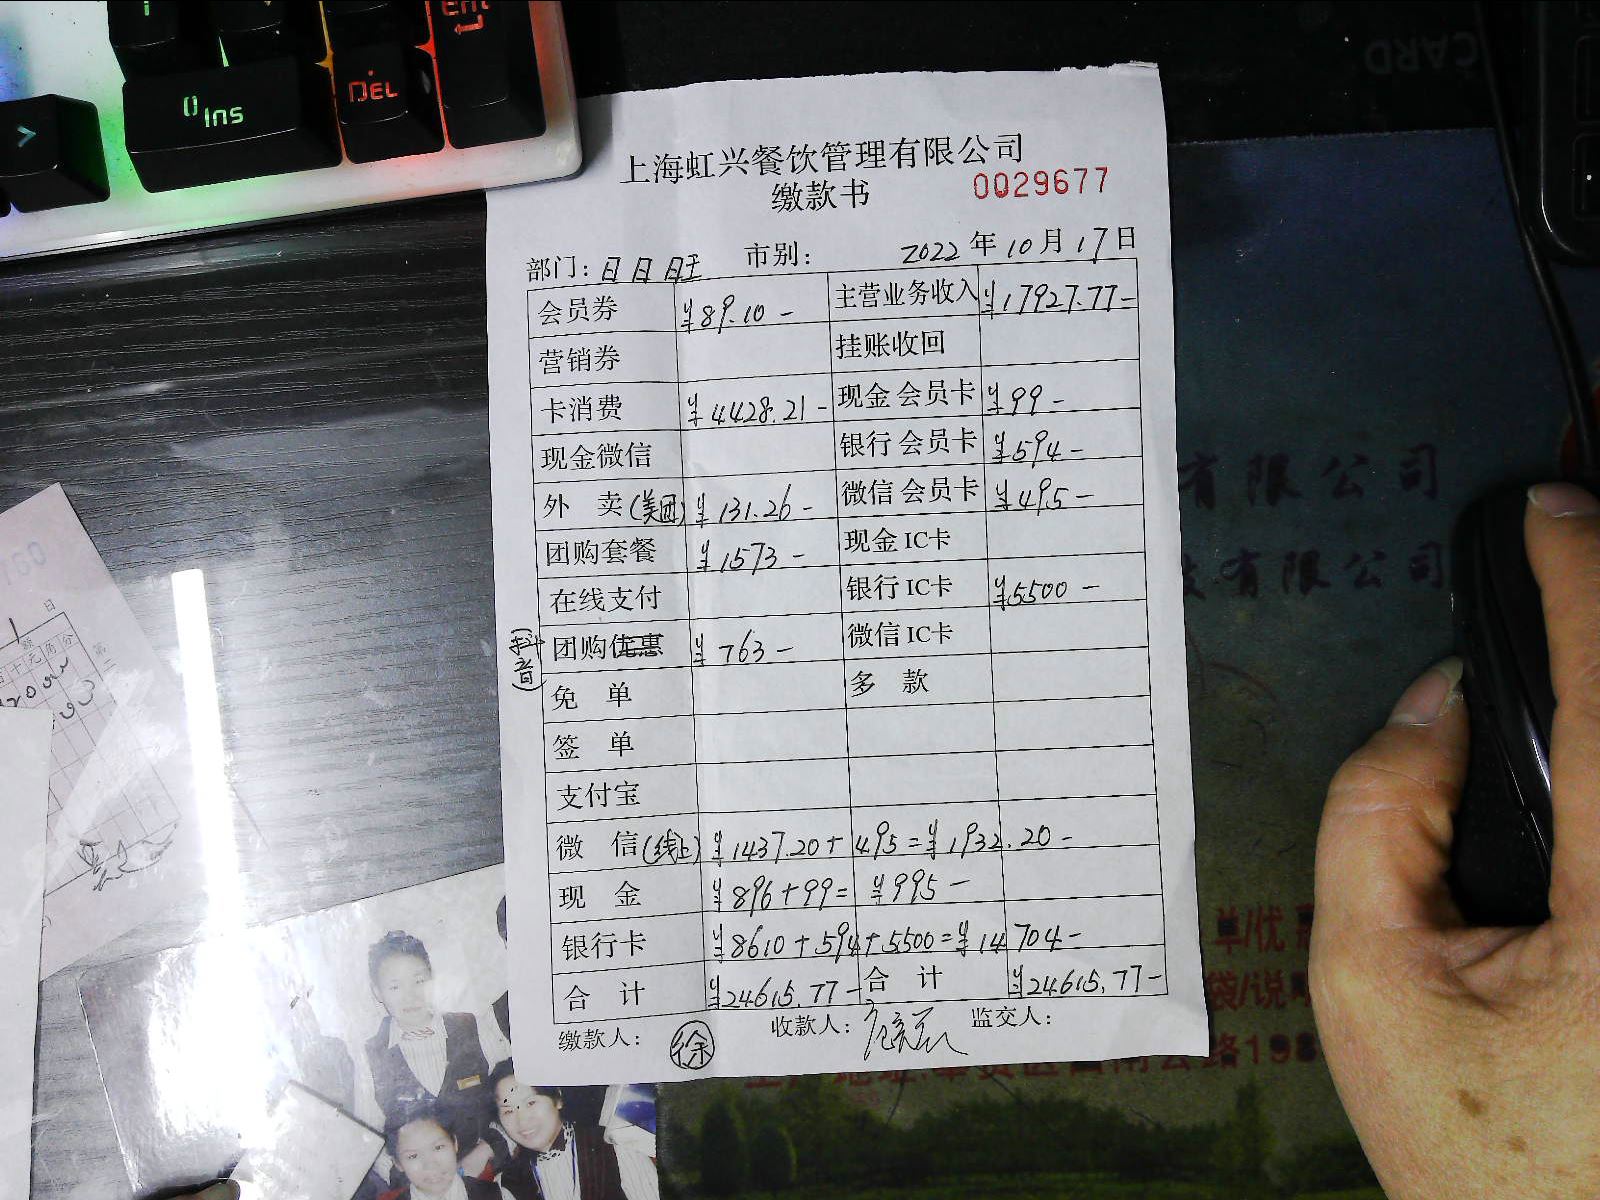 Ins
DEL
Ent
CARD
上海虹兴餐饮管理有限公司
缴款书 0029677
部门: 日日旺 市别: 2022年10月17日
会员券 ¥89.10- 主营业务收入 ¥17927.77-
营销券 挂账收回
卡消费 ¥4428.21- 现金 会员卡 ¥99-
现金微信 银行 会员卡 ¥594-
外 卖(美团) ¥131.26- 微信 会员卡 ¥495-
团购套餐 ¥1573- 现金 IC卡
在线支付 银行 IC卡 ¥5500-
团购优惠 (抖音) ¥763- 微信 IC卡
免 单 多 款
签 单
支付宝
微 信(线上) ¥1437.20+495=¥1932.20-
现 金 ¥896+99=¥995-
银行卡 ¥8610+594+5500=¥14704-
合 计 ¥24615.77- 合 计 ¥24615.77-
缴款人: 徐 收款人: 监交人:
有限公司
有限公司
单/优
袋/说